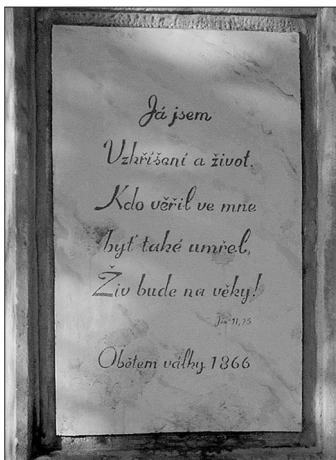 Já jsem
Vzkříšení a život.
Kdo věřil ve mne
byť také umřel,
Živ bude na věky!
Jan 11,25
Obětem války 1866